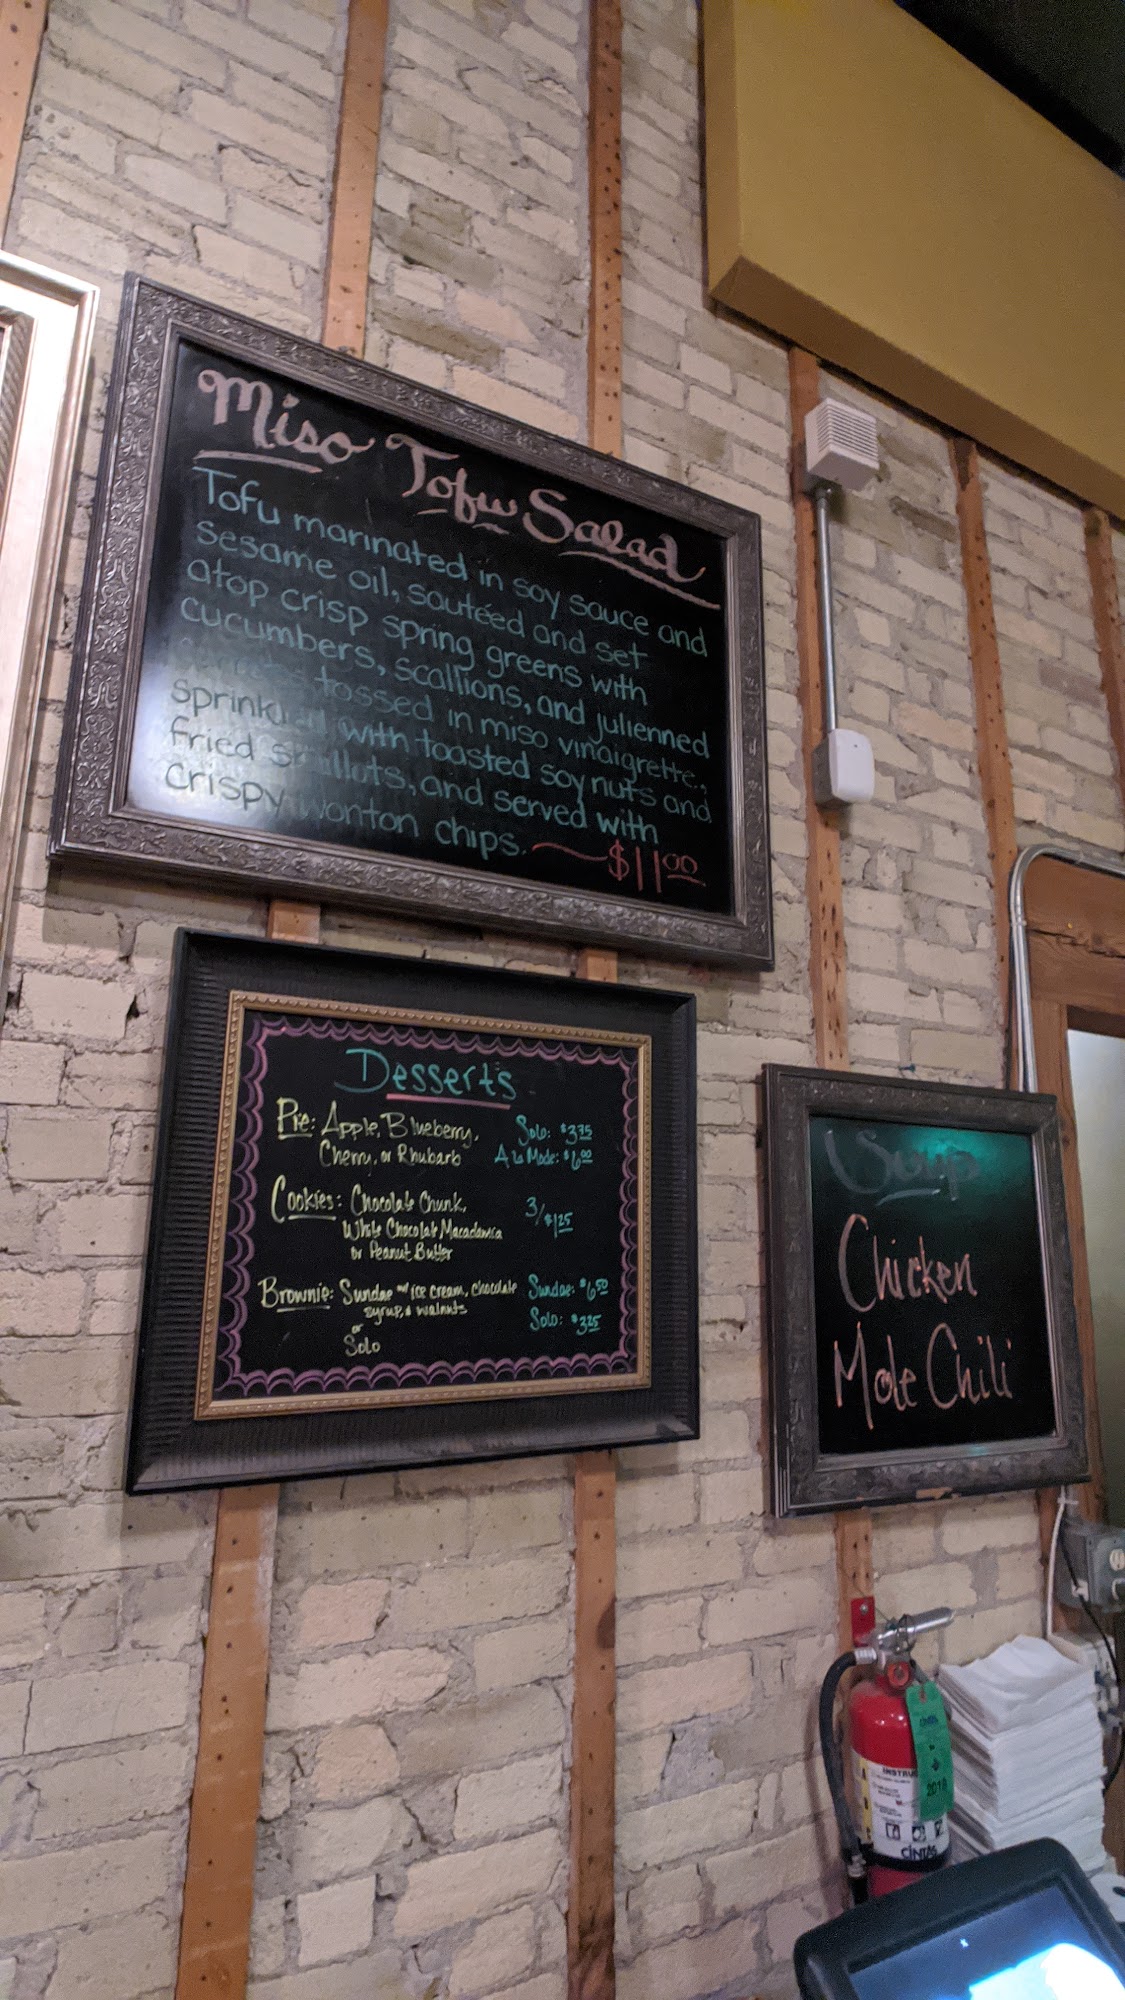 Miso Tofu Salad
Tofu marinated in soy sauce and
sesame oil, sautéed and set
atop crisp spring greens with
cucumbers, scallions, and julienned
tossed in miso vinaigrette,
sprinkled with toasted soy nuts and
fried shallots, and served with
crispy wonton chips. $11.00
Desserts
Pie: Apple, Blueberry, Solo: $3.75
Cherry, or Rhubarb A la Mode: $6.00
Cookies: Chocolate Chunk, 3/$1.25
White Chocolate Macadamia
or Peanut Butter
Brownie: Sundae w/ ice cream, chocolate Sundae: $6.50
syrup, & walnuts Solo: $3.25
or
Solo
Soup
Chicken
Mole Chili
INSTRU
2018
CINTAS